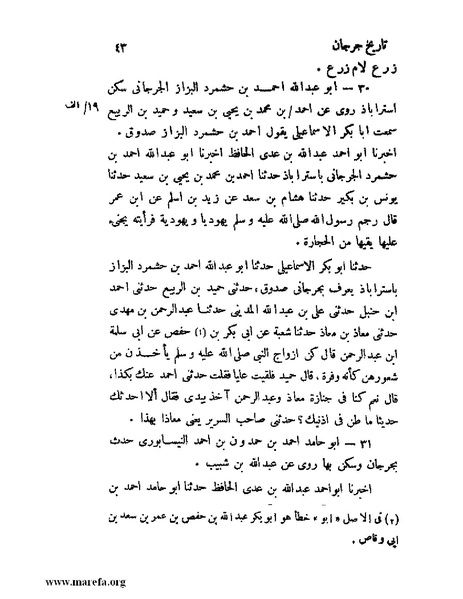 تاريخ جرجان ٤٣
زرع لام زرع .
٣٠ – ابو عبدالله احمد بن حشمرد البزاز الجرجانى سكن
استراباذ روى عن احمد/ بن محمد بن يحيى بن سعيد و حميد بن الربيع ١٩/ الف
سمعت ابا بكر الاسماعيلى يقول احمد بن حشمرد البزاز صدوق .
اخبرنا ابو احمد عبدالله بن عدى الحافظ اخبرنا ابو عبدالله احمد بن
حشمرد الجرجانى باستراباذ حدثنا احمد بن محمد بن يحيى بن سعيد حدثنا
يونس بن بكير حدثنا هشام بن سعد عن زيد بن اسلم عن ابن عمر
قال رجم رسول الله صلى الله عليه و سلم يهوديا و يهودية فرأيته يجنىء
عليها يقيها من الحجارة .
حدثنا ابو بكر الاسماعيلى حدثنا ابو عبدالله احمد بن حشمرد البزاز
باستراباذ يعرف بجرجانى صدوق ، حدثنى حميد بن الربيع حدثنى احمد
ابن حنبل حدثنى على بن عبدالله المدينى حدثنا عبدالرحمن بن مهدى
حدثنى معاذ بن معاذ حدثنا شعبة عن ابى بكر بن (١) حفص عن ابى سلمة
ابن عبدالرحمن قال كن ازواج النبى صلى الله عليه و سلم يأخذن من
شعورهن كأنه وفرة . قال حميد فلقيت عليا فقلت حدثنى احمد عنك بكذا ،
قال نعم كنا فى جنازة معاذ وعبدالرحمن آخذ بيدى فقال ألا احدثك
حديثا ما طن فى اذنيك ؟ حدثنى صاحب السرير يعنى معاذا بهذا .
٣١ – ابو حامد احمد بن حمدون بن احمد النيسابورى حدث
بجرجان وسكن بها روى عن عبدالله بن شبيب .
اخبرنا ابواحمد عبدالله بن عدى الحافظ حدثنا ابو حامد احمد بن
(٢) فى الاصل « ابو » خطأ هو ابو بكر عبدالله بن حفص بن عمر بن سعد بن
ابى وقاص .
www.marefa.org